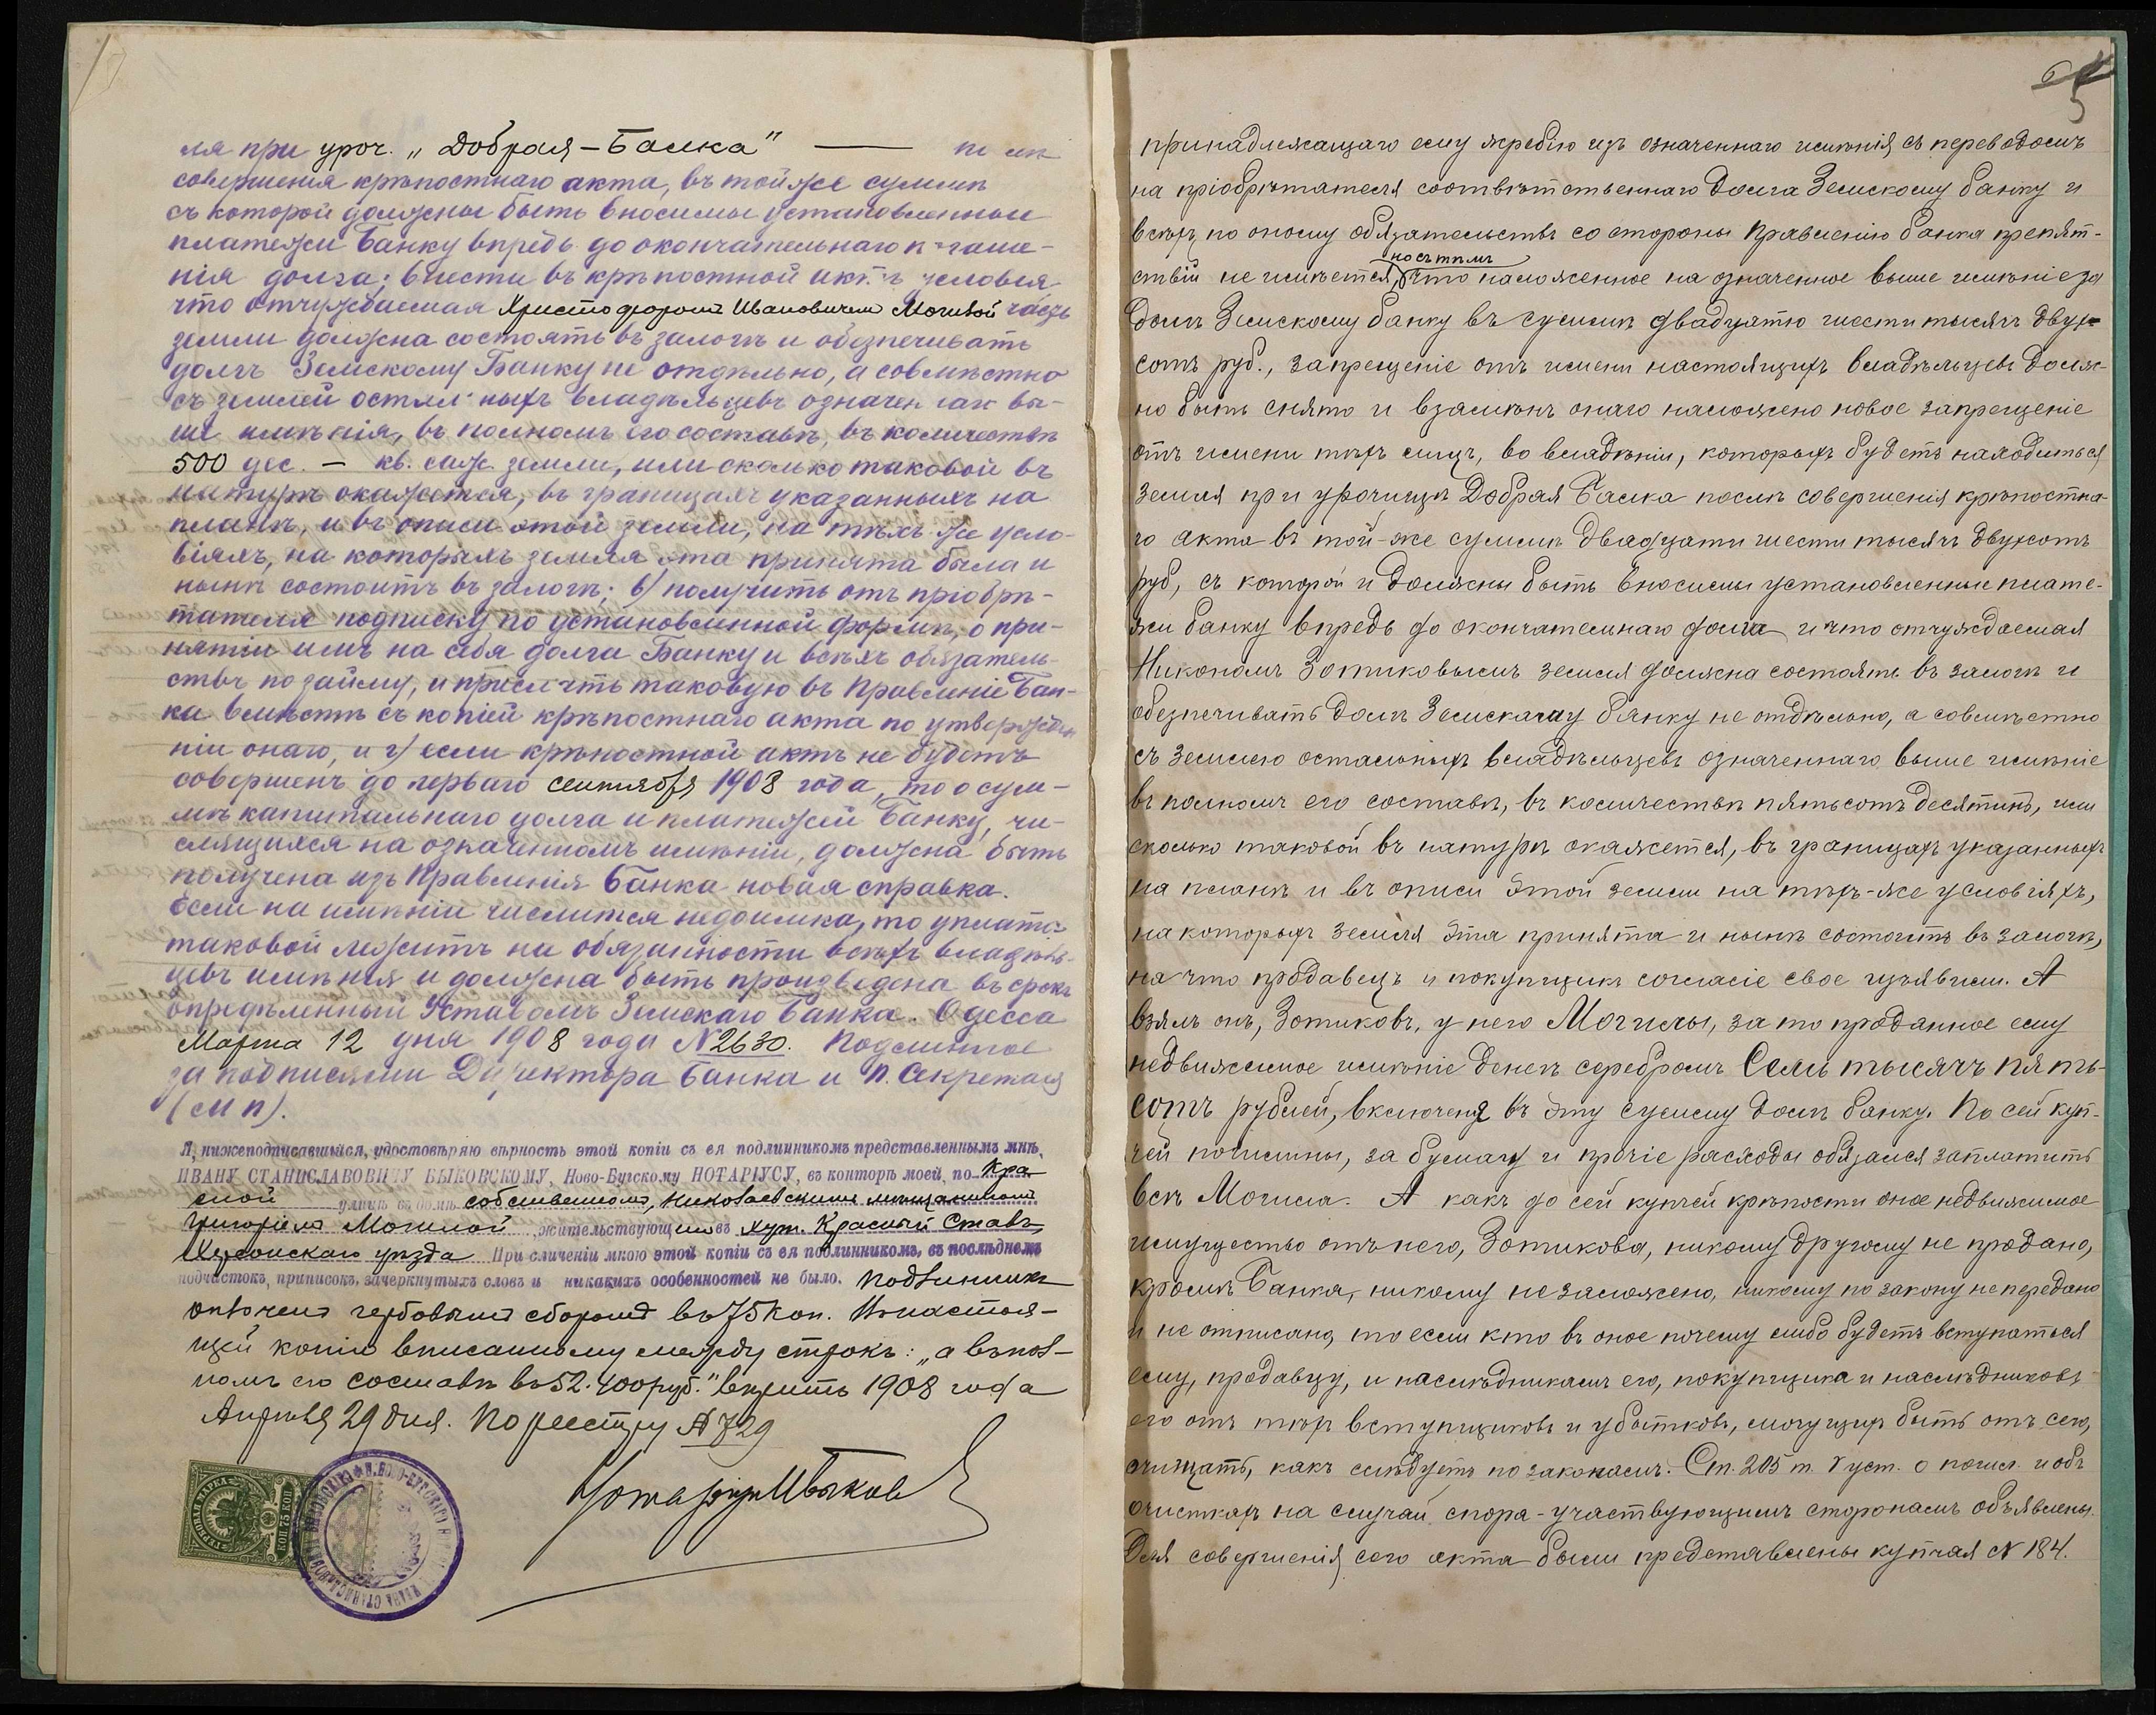 ля при уроч. „Добрая-Балка" — послѣ
совершенія крѣпостнаго акта, въ той же суммѣ
съ которой должны быть вносимы установленные
платежи Банку впредь до окончательнаго погаше-
нія долга; внести въ крѣпостной актъ условія
что отчуждаемая Христофоромъ Ивановичемъ Могилой часть
земли должна состоять въ залогѣ и обезпечивать
долгъ Земскому Банку не отдѣльно, а совмѣстно
съ землей остальныхъ владѣльцевъ означеннаго вы-
ше имѣнія, въ полномъ его составѣ, въ количествѣ
500 дес. — кв. саж. земли, или сколько таковой въ
натурѣ окажется, въ границахъ указанныхъ на
планѣ, и въ описи этой земли, на тѣхъ же усло-
віяхъ, на которыхъ земля эта принята была и
нынѣ состоитъ въ залогѣ; в) получить отъ пріобрѣ-
тателя подписку по установленной формѣ, о при-
нятіи имъ на себя долга Банку и всѣхъ обязатель-
ствъ по займу, и прислать таковую въ Правленіе Бан-
ка вмѣстѣ съ копіей крѣпостнаго акта по утвержде-
ніи онаго, и г) если крѣпостной актъ не будетъ
совершенъ до перваго сентября 1908 года, то о сум-
мѣ капитальнаго долга и платежей Банку, чи-
слящихся на означенномъ имѣніи, должна быть
получена изъ Правленія Банка новая справка.
Если на имѣніи числится недоимка, то уплата
таковой лежитъ на обязанности всѣхъ владѣль-
цевъ имѣнія и должна быть произведена въ срокъ
опредѣленный Уставомъ Земскаго Банка. Одесса
Марта 12 дня 1908 года №2630. Подлинное
за подписями Директора Банка и П. Секретаря
(М П).
Я, нижеподписавшійся, удостовѣряю вѣрность этой копіи съ ея подлинникомъ представленнымъ мнѣ,
ИВАНУ СТАНИСЛАВОВИЧУ БЫКОВСКОМУ, Ново-Бугскому НОТАРІУСУ, въ конторѣ моей, по Кра
сной улицѣ въ домѣ собственномъ, Николаевскимъ мѣщаниномъ
Григоріемъ Могилой, жительствующимъ въ хут. Красный Ставъ,
Херсонскаго уѣзда При сличеніи мною этой копіи съ ея подлинникомъ, въ послѣднемъ
подчистокъ, приписокъ, зачеркнутыхъ словъ и никакихъ особенностей не было. Подлинникъ
оплоченъ гербовымъ сборомъ въ 75 коп. Въ настоя-
щей копіи вписанному между строкъ: „а въ пол-
номъ его составѣ въ 52.400 руб." вѣрить 1908 года
Апрѣля 29 дня. По реестру № 729
Нотаріусъ И Быков
ГЕРБОВАЯ МАРКА
КОП 75 КОП
6
5
принадлежащаго ему жребію изъ означеннаго имѣнія съ переводомъ
на пріобрѣтателя соотвѣтственнаго долга Земскому банку и
всѣхъ по оному обязательствъ со стороны Правленію банка препят-
но съ тѣмъ
ствій не имѣется, что наложенное на означенное выше имѣніе за
долгъ Земскому банку въ суммѣ двадцатью шести тысячъ двух-
сотъ руб., запрещеніе отъ имени настоящихъ владѣльцевъ долж-
но быть снято и взамѣнъ онаго наложено новое запрещеніе
отъ имени тѣхъ лицъ, во владѣніи, которыхъ будетъ находиться
земля при урочищѣ Добрая Балка послѣ совершенія крѣпостна-
го акта въ той-же суммѣ двадцати шести тысячъ двухсотъ
руб, съ которой и должны быть вносимы установленные плате-
жи банку впредь до окончательнаго долга и что отчуждаемая
Никономъ Зотиковымъ земля должна состоять въ залогѣ и
обезпечивать долгъ Земскаму банку не отдѣльно, а совмѣстно
съ землею остальныхъ владѣльцевъ означеннаго выше имѣніе
въ полномъ его составѣ, въ количествѣ пятьсотъ десятинъ, или
сколько таковой въ натурѣ окажется, въ границахъ указанныхъ
на планѣ и въ описи этой земли на тѣхъ-же условіяхъ,
на которыхъ земля эта принята и нынѣ состоитъ въ залогѣ,
на что продавецъ и покупщикъ согласіе свое изъявили. А
взялъ онъ, Зотиковъ, у него Могилы, за то проданное ему
недвижимое имѣніе денегъ серебромъ Семь тысячъ пять-
сотъ рублей, включена въ эту сумму долгъ банку. По сей куп-
чей пошлины, за бумагу и прочіе расходы обязался заплатить
всѣ Могила. А какъ до сей купчей крѣпости оное недвижимое
имущество отъ него, Зотикова, никому другому не продано,
кромѣ Банка, никому не заложено, никому по закону не передано
и не отписано, то если кто въ оное почему либо будетъ вступаться
ему, продавцу, и наслѣдникамъ его, покупщика и наслѣдниковъ
его отъ тѣхъ вступщиковъ и убытковъ, могущихъ быть отъ сего,
очищать, какъ слѣдуетъ по законамъ. Ст. 205 т. V уст. о пошл. и объ
очисткахъ на случай спора - участвующимъ сторонамъ объявлены.
Для совершенія сего акта были представлены купчая № 184.